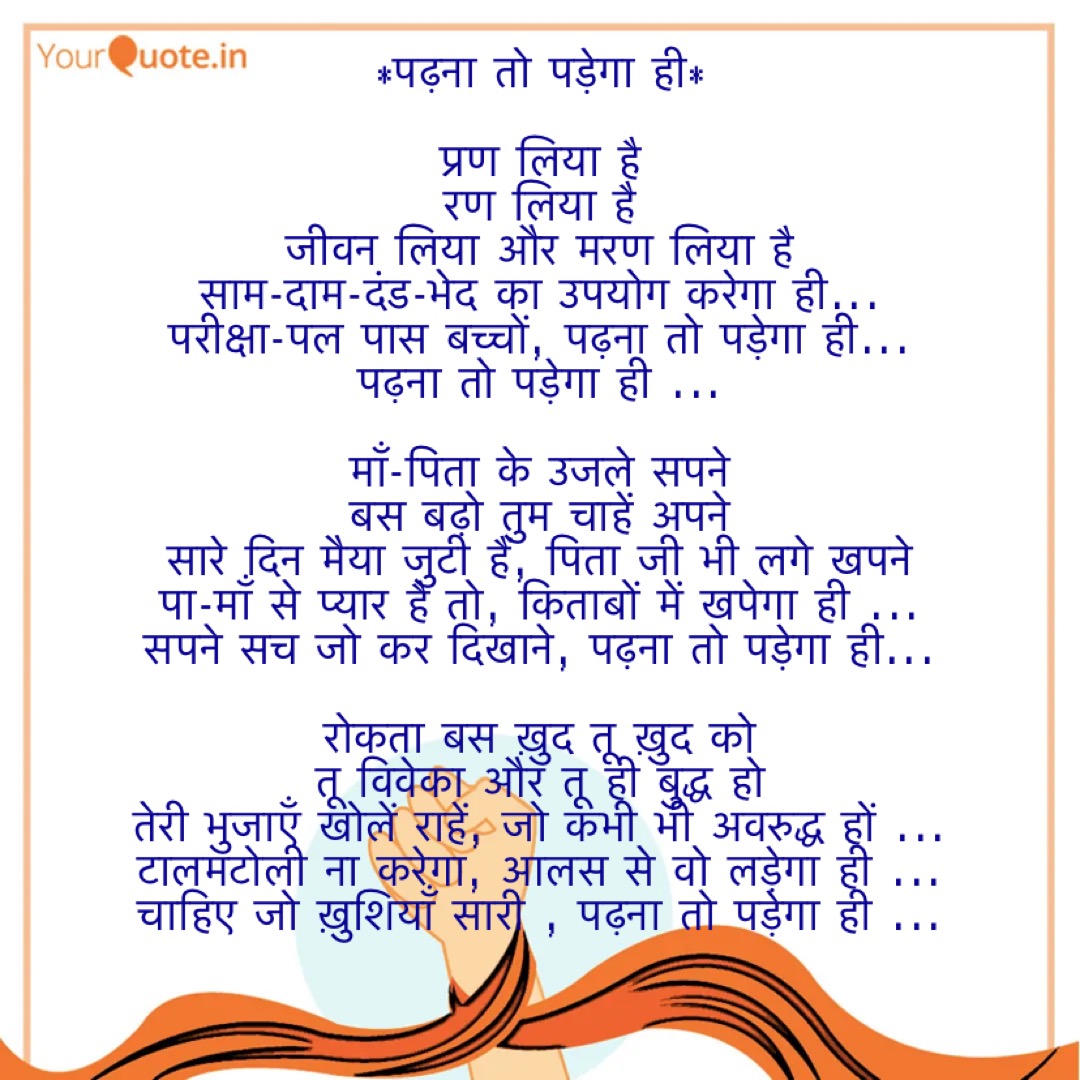 YourQuote.in
*पढ़ना तो पड़ेगा ही*
प्रण लिया है
रण लिया है
जीवन लिया और मरण लिया है
साम-दाम-दंड-भेद का उपयोग करेगा ही...
परीक्षा-पल पास बच्चों, पढ़ना तो पड़ेगा ही...
पढ़ना तो पड़ेगा ही ...
माँ-पिता के उजले सपने
बस बढ़ो तुम चाहें अपने
सारे दिन मैया जुटी हैं, पिता जी भी लगे खपने
पा-माँ से प्यार है तो, किताबों में खपेगा ही ...
सपने सच जो कर दिखाने, पढ़ना तो पड़ेगा ही...
रोकता बस ख़ुद तू ख़ुद को
तू विवेका और तू ही बुद्ध हो
तेरी भुजाएँ खोलें राहें, जो कभी भी अवरुद्ध हों ...
टालमटोली ना करेगा, आलस से वो लड़ेगा ही ...
चाहिए जो ख़ुशियाँ सारी , पढ़ना तो पड़ेगा ही ...